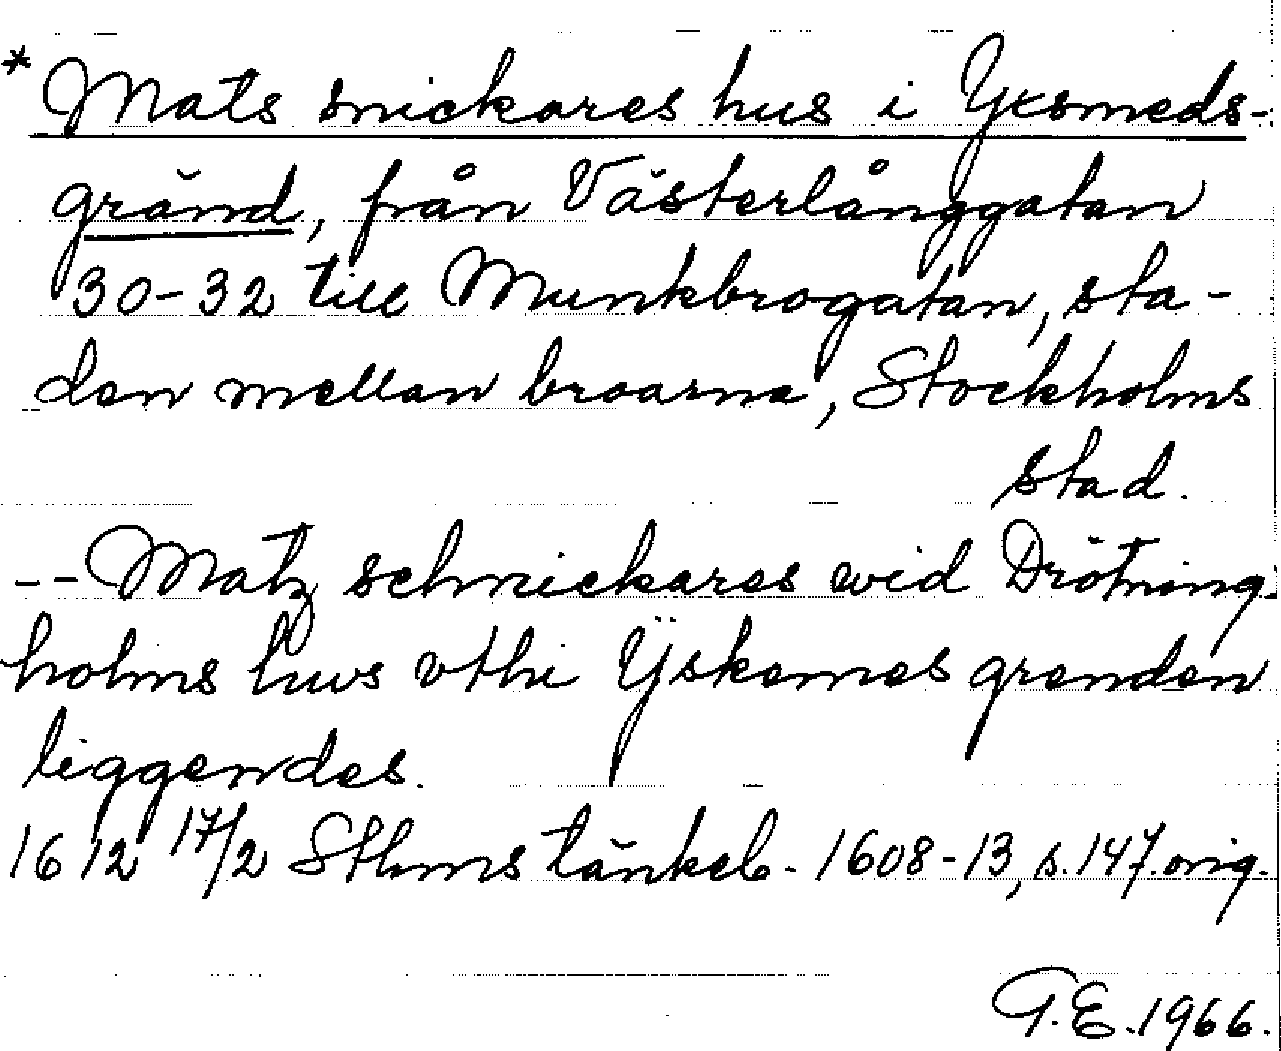 * Mats snickares hus i Yxsmeds-
gränd, från Västerlånggatan
30-32 till Munkbrogatan, sta-
den mellan broarna, Stockholms
stad.
-- Matz schnickares wid Drötning
holms huus vthi Ÿskemes grenden
liggendes.
1612 17/2 Sthms tänkeb. 1608-13, s.147.orig.
G.E.1966.